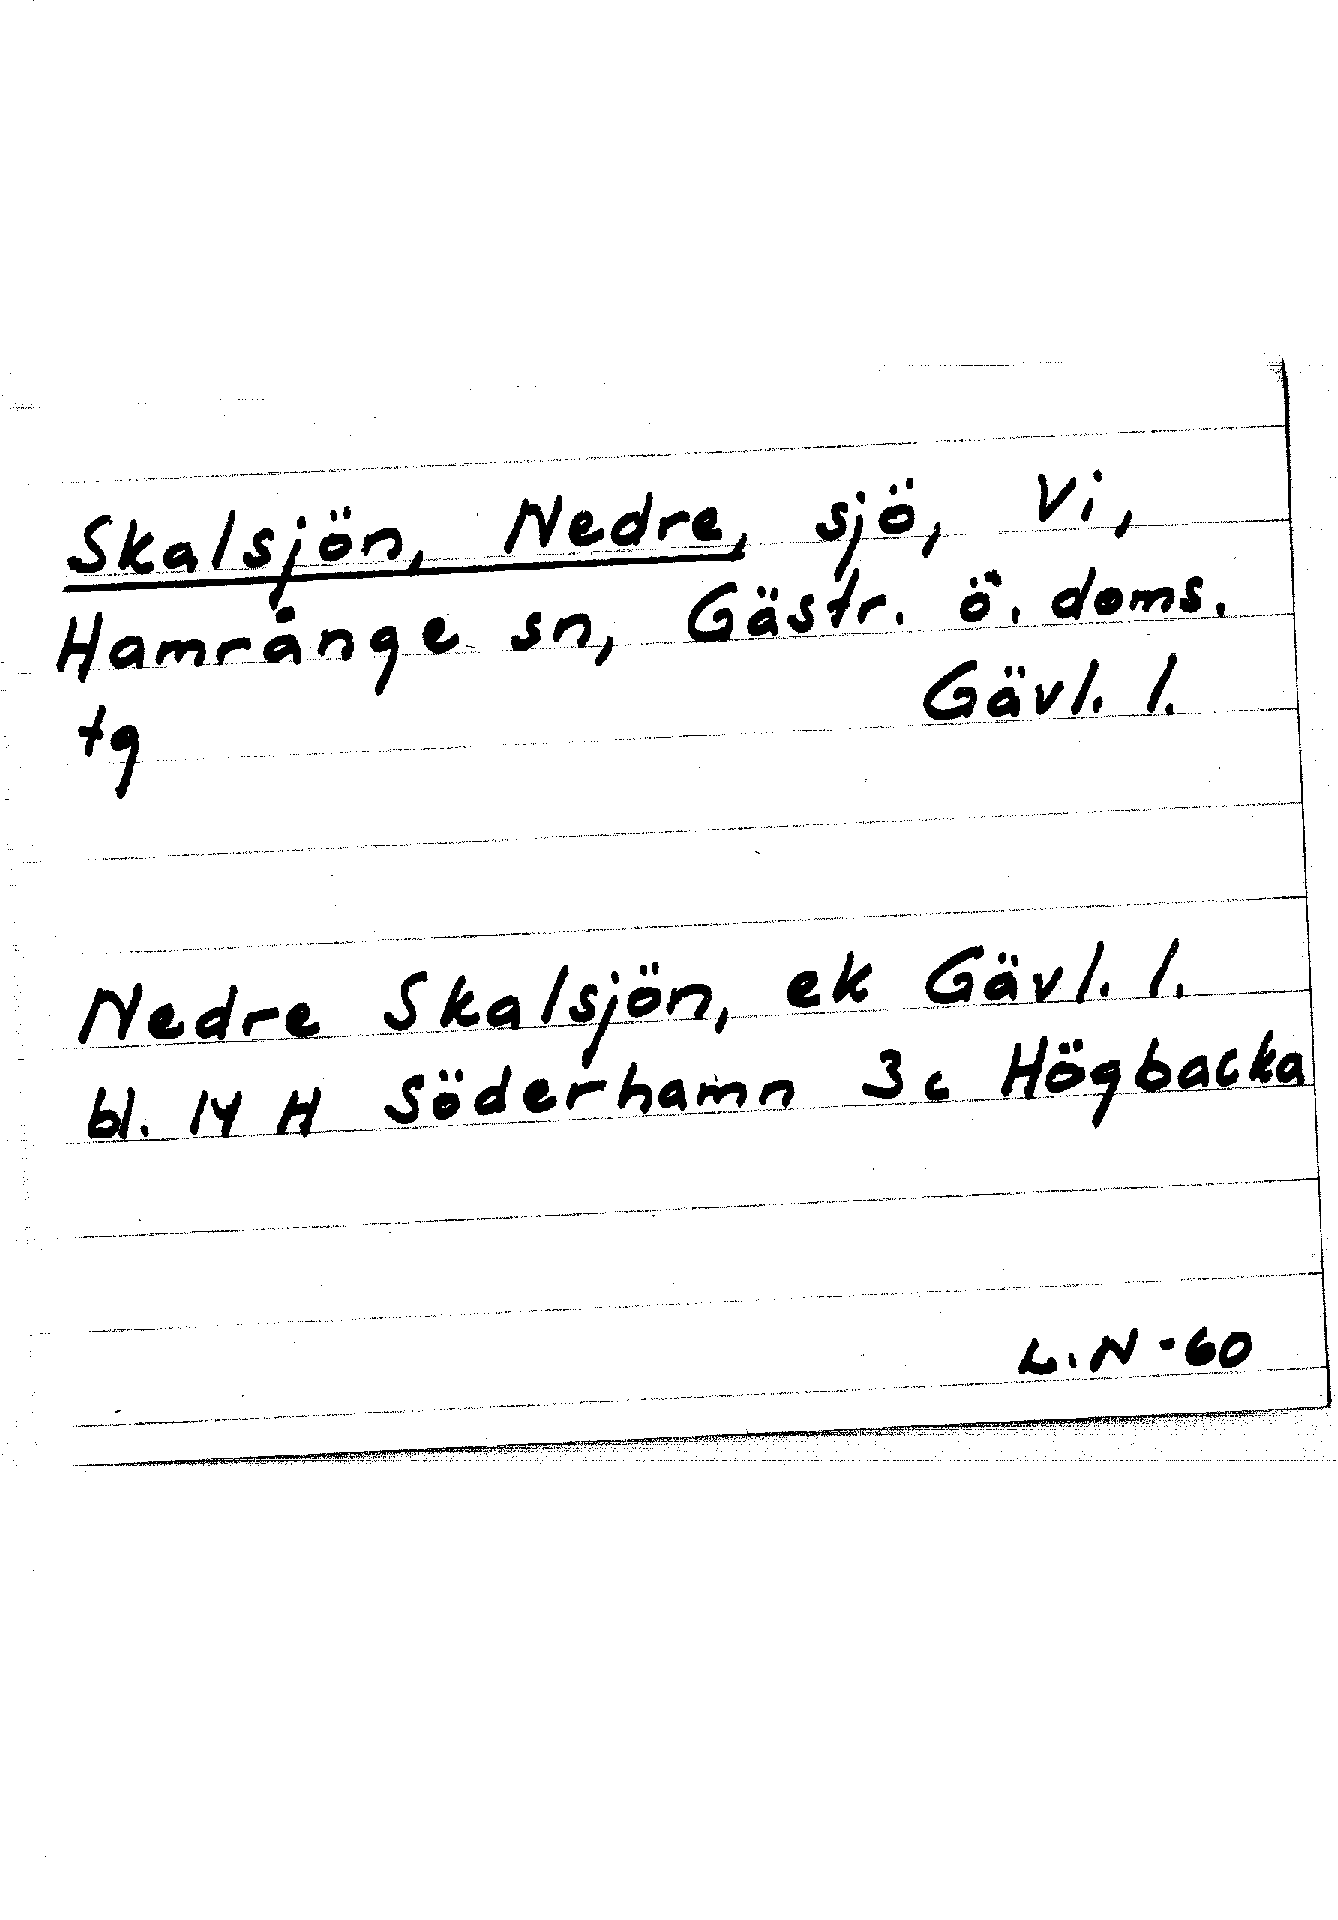 Skalsjön, Nedre, sjö, Vi,
Hamrånge sn, Gästr. ö. doms.
tg Gävl. l.
Nedre Skalsjön, ek Gävl. l.
bl. 14 H Söderhamn 3c Högbacka
L.N -60